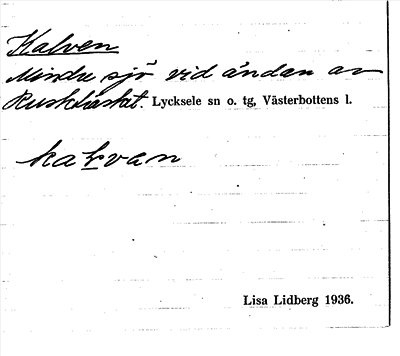 Kalven
Mindre sjö vid ändan av
Ruskträsket. Lycksele sn o. tg, Västerbottens l.
kaḷvan
Lisa Lidberg 1936.